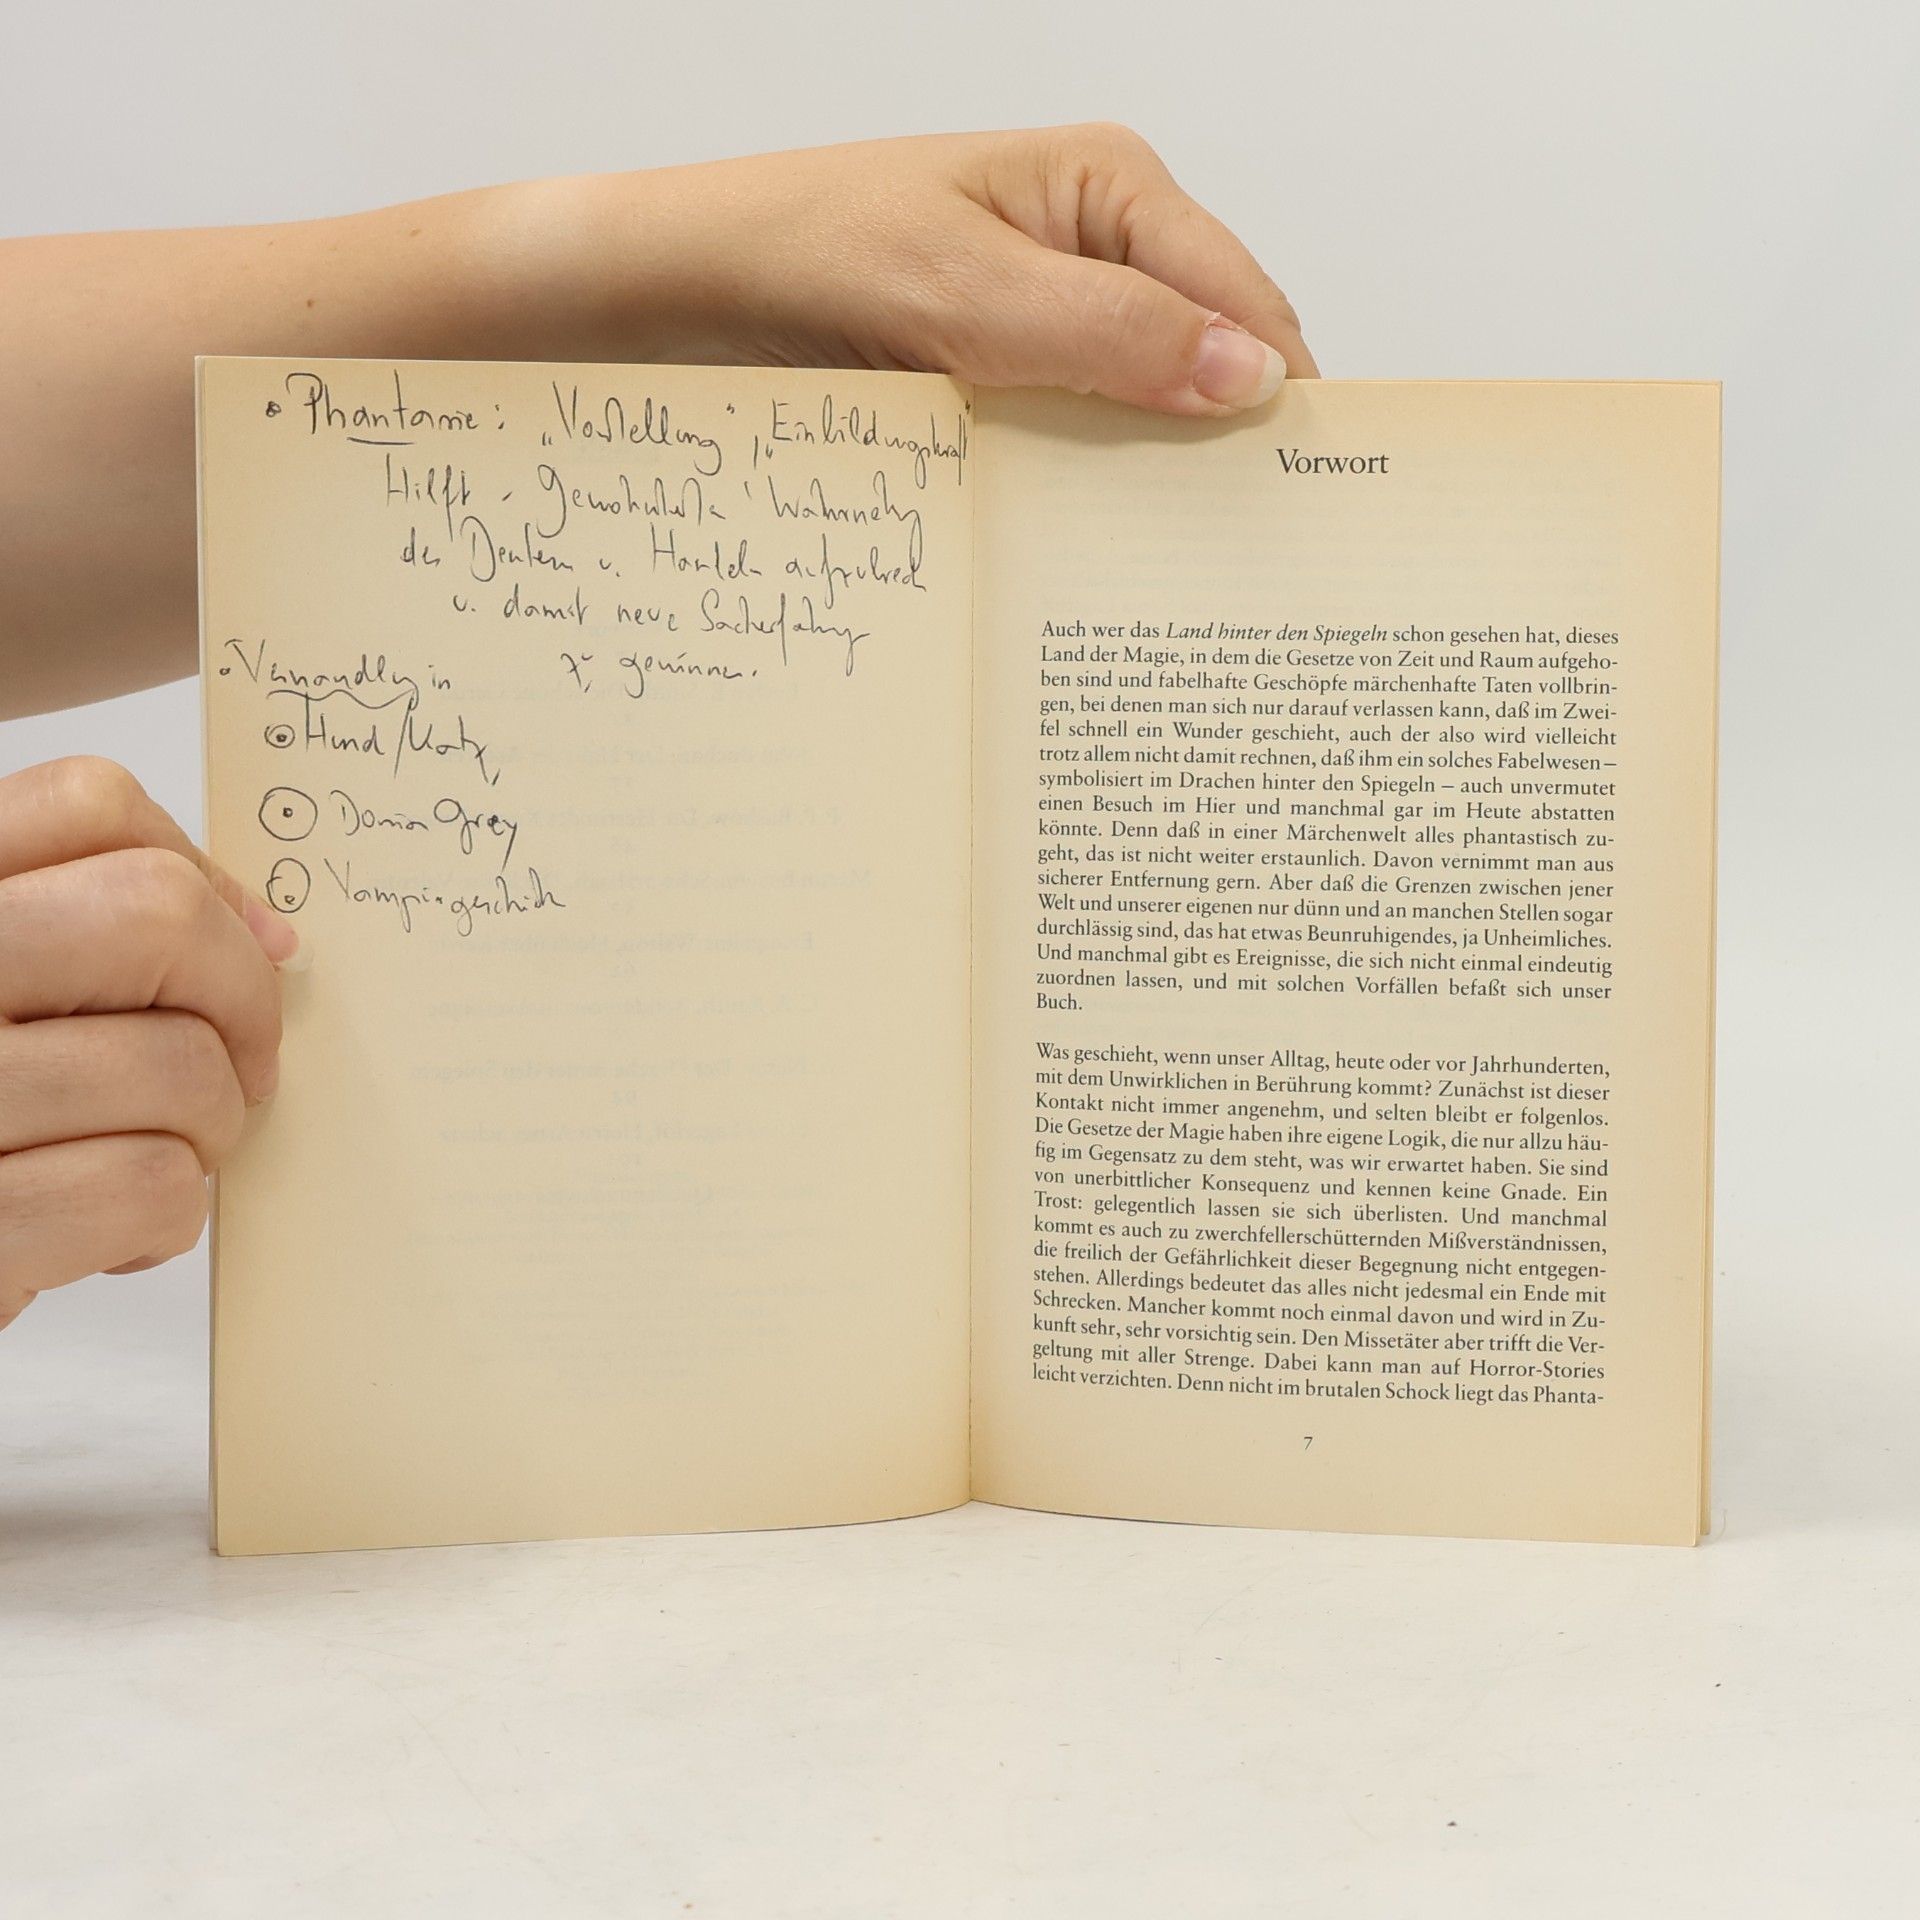 Phantasie: „Vorstellung", „Einbildungskraft"
Hilft - Wahrneh
des Denkens u. Handeln
u. damit neue Sacherfahrg
zu gewinnen.
Verwandlg in
Hund/Katz,
Dorian Grey
Vampirgeschich
Vorwort
Auch wer das Land hinter den Spiegeln schon gesehen hat, dieses
Land der Magie, in dem die Gesetze von Zeit und Raum aufgeho-
ben sind und fabelhafte Geschöpfe märchenhafte Taten vollbrin-
gen, bei denen man sich nur darauf verlassen kann, daß im Zwei-
fel schnell ein Wunder geschieht, auch der also wird vielleicht
trotz allem nicht damit rechnen, daß ihm ein solches Fabelwesen –
symbolisiert im Drachen hinter den Spiegeln – auch unvermutet
einen Besuch im Hier und manchmal gar im Heute abstatten
könnte. Denn daß in einer Märchenwelt alles phantastisch zu-
geht, das ist nicht weiter erstaunlich. Davon vernimmt man aus
sicherer Entfernung gern. Aber daß die Grenzen zwischen jener
Welt und unserer eigenen nur dünn und an manchen Stellen sogar
durchlässig sind, das hat etwas Beunruhigendes, ja Unheimliches.
Und manchmal gibt es Ereignisse, die sich nicht einmal eindeutig
zuordnen lassen, und mit solchen Vorfällen befaßt sich unser
Buch.
Was geschieht, wenn unser Alltag, heute oder vor Jahrhunderten,
mit dem Unwirklichen in Berührung kommt? Zunächst ist dieser
Kontakt nicht immer angenehm, und selten bleibt er folgenlos.
Die Gesetze der Magie haben ihre eigene Logik, die nur allzu häu-
fig im Gegensatz zu dem steht, was wir erwartet haben. Sie sind
von unerbittlicher Konsequenz und kennen keine Gnade. Ein
Trost: gelegentlich lassen sie sich überlisten. Und manchmal
kommt es auch zu zwerchfellerschütternden Mißverständnissen,
die freilich der Gefährlichkeit dieser Begegnung nicht entgegen-
stehen. Allerdings bedeutet das alles nicht jedesmal ein Ende mit
Schrecken. Mancher kommt noch einmal davon und wird in Zu-
kunft sehr, sehr vorsichtig sein. Den Missetäter aber trifft die Ver-
geltung mit aller Strenge. Dabei kann man auf Horror-Stories
leicht verzichten. Denn nicht im brutalen Schock liegt das Phanta-
7